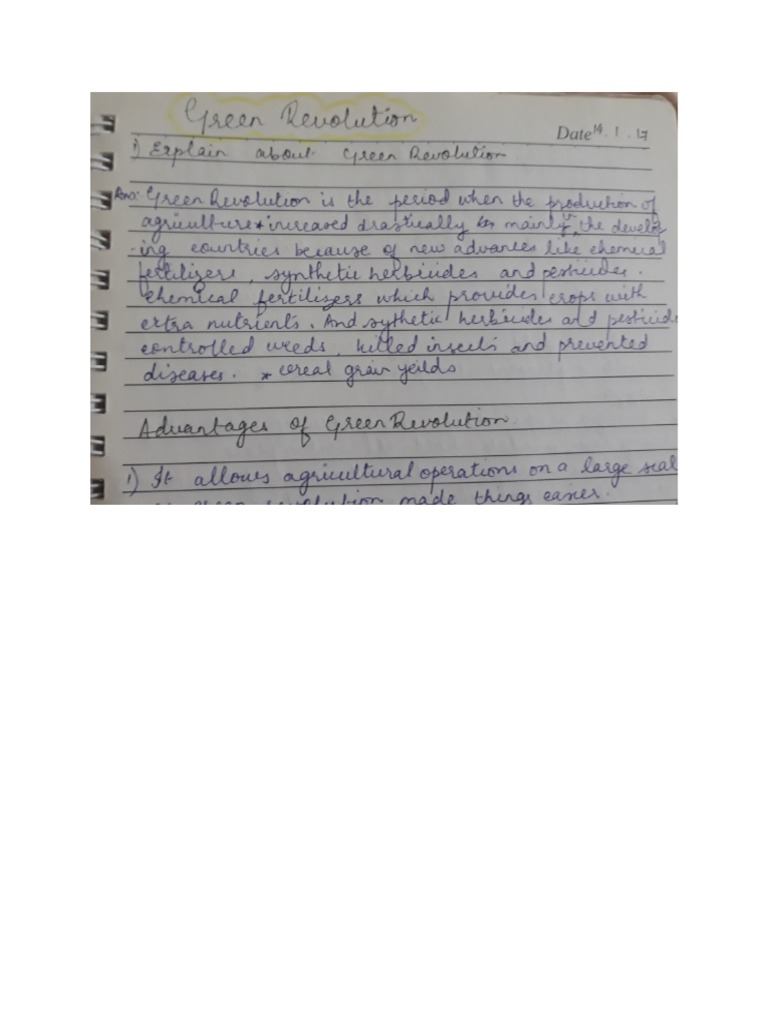 Green Revolution
Date 14.1.17
1) Explain about Green Revolution
Ans: Green Revolution is the period when the production of
agriculture* increased drastically mainly in the develop
-ing countries because of new advances like chemical
fertilizers, synthetic herbicides and pesticides.
chemical fertilizers which provides crops with
extra nutrients. And sythetic herbicides and pesticide
controlled weeds, killed insects and prevented
diseases. * cereal grain yeilds
Advantages of Green Revolution
1) It allows agricultural operations on a large scal
revolution made things easier.